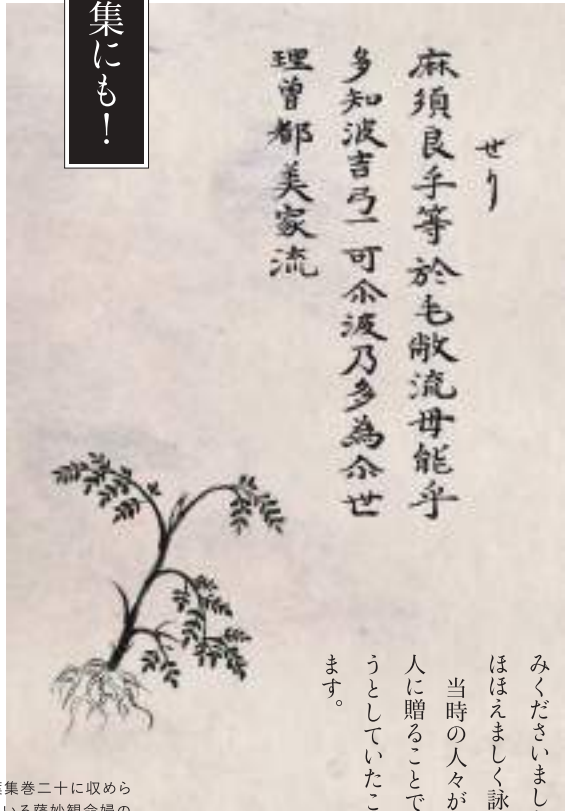 せり
麻須良乎等於毛敝流母能乎
多知波吉弖可尒波乃多為尒世
理曾都美家流
集にも!
みくださいまし
ほほえましく詠
当時の人々が
人に贈ることで
うとしていたこ
ます。
集巻二十に収めら
いる薩妙観命婦の